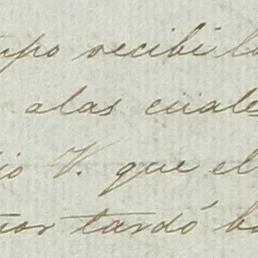 mpo recibi la
alas cuales
io V. que el
tardó